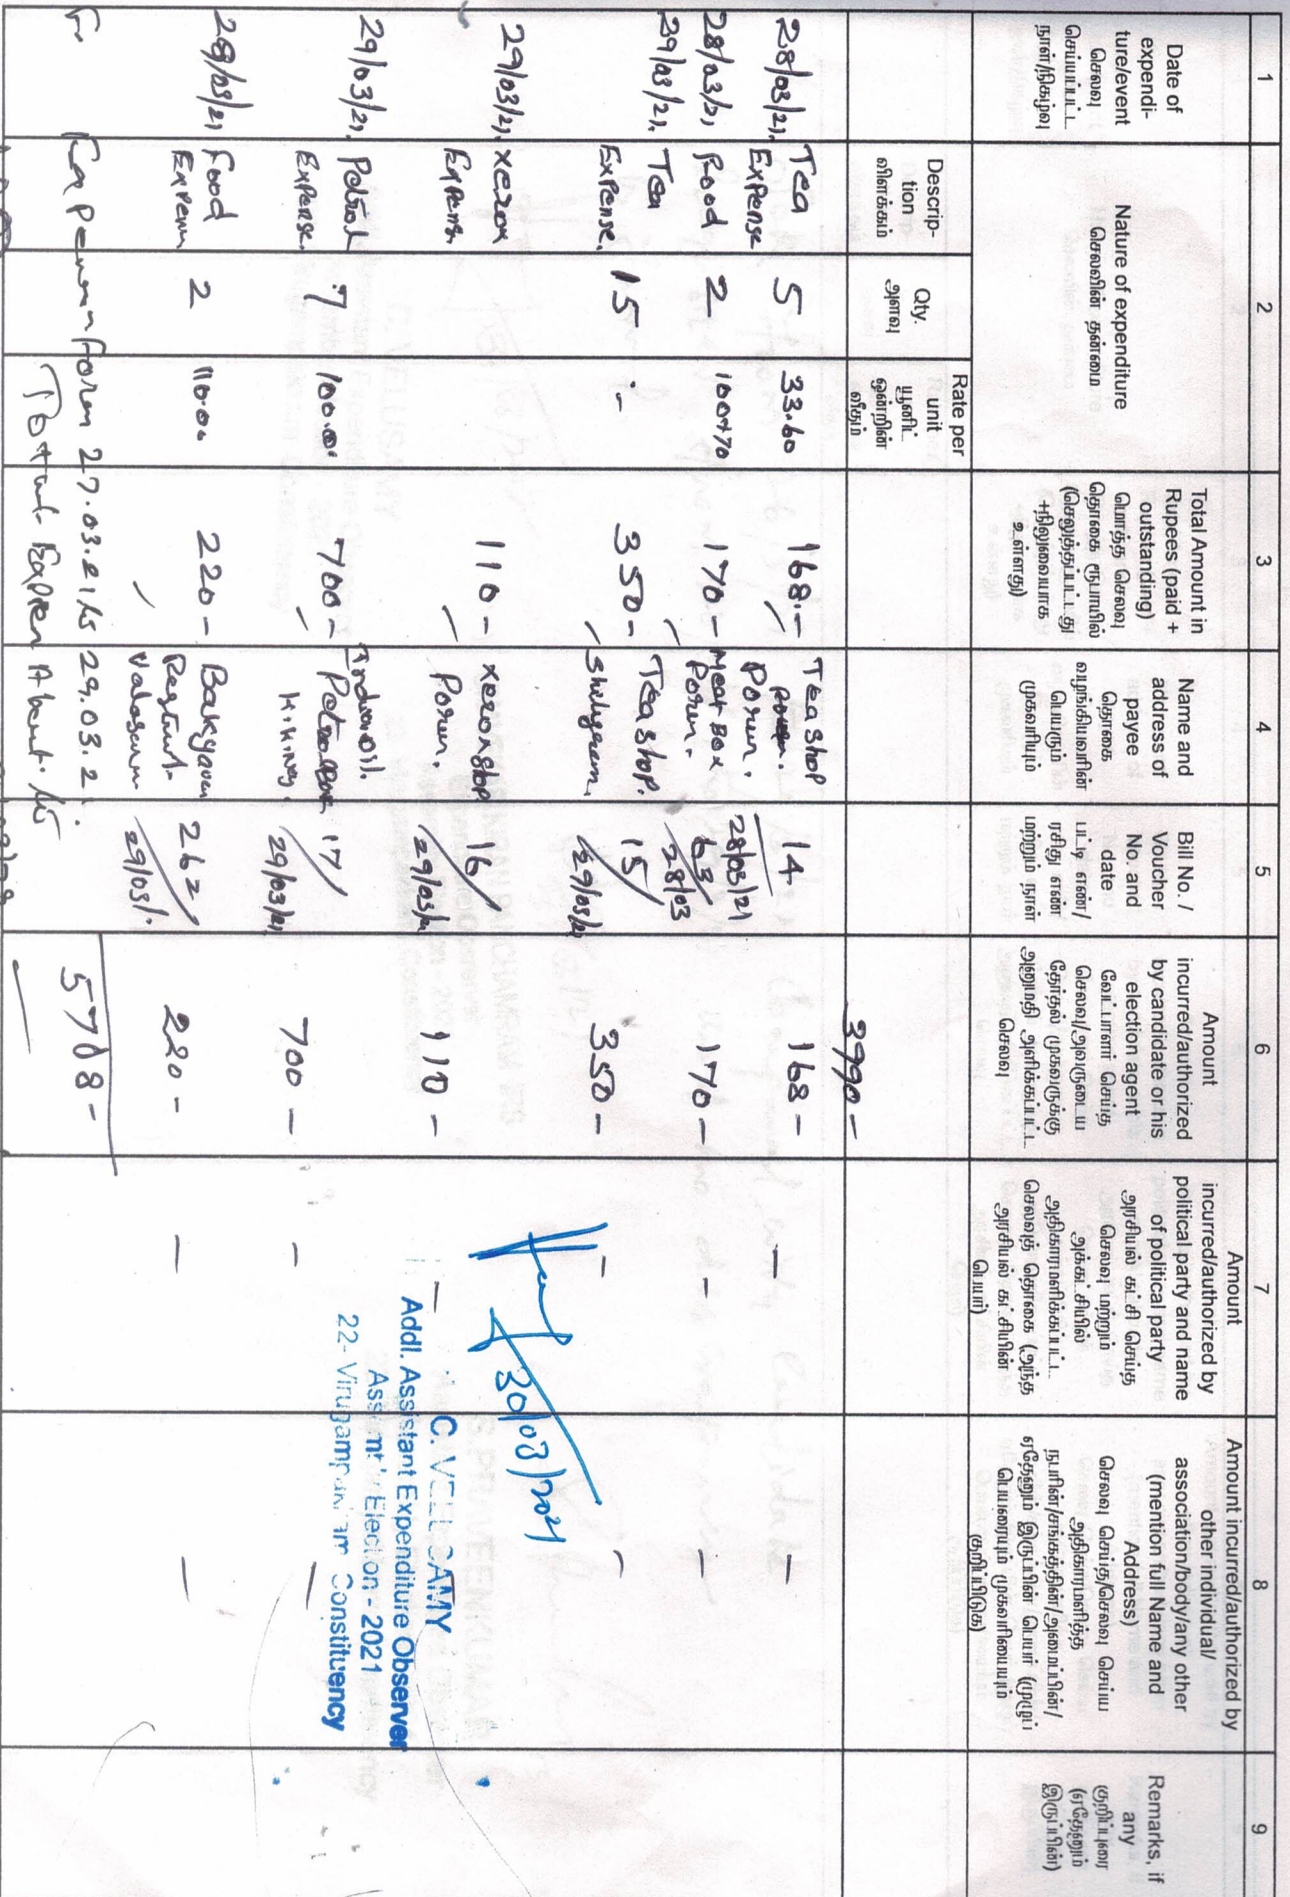 1
2
3
4
5
6
7
8
9
Date of
expendi-
ture/event
செலவு
செய்யப்பட்ட
நாள்/நிகழ்வு
Nature of expenditure
செலவின் தன்மை
Total Amount in
Rupees (paid +
outstanding)
மொத்த செலவு
தொகை ரூபாயில்
(செலுத்தப்பட்டது
+நிலுவையாக
உள்ளது)
Name and
address of
payee
தொகை
வழங்கியவரின்
பெயரும்
முகவரியும்
Bill No. /
Voucher
No. and
date
பட்டி எண்/
ரசிது எண்
மற்றும் நாள்
Amount
incurred/authorized
by candidate or his
election agent
வேட்பாளர் செய்த
செலவு/அவருடைய
தேர்தல் முகவருக்கு
அனுமதி அளிக்கப்பட்ட
செலவு
Amount
incurred/authorized by
political party and name
of political party
அரசியல் கட்சி செய்த
செலவு மற்றும்
அக்கட்சியில்
அதிகாரமளிக்கப்பட்ட
செலவுத் தொகை (அந்த
அரசியல் கட்சியின்
பெயர்)
Amount incurred/authorized by
other individual/
association/body/any other
(mention full Name and
Address)
செலவு செய்த/செலவு செய்ய
அதிகாரமளித்த
நபரின்/சங்கத்தின்/அமைப்பின்/
ஏதேனும் இருப்பின் பெயர் (முழுப்
பெயரையும் முகவரியையும்
குறிப்பிடுக)
Remarks, if
any
குறிப்புரை
(ஏதேனும்
இருப்பின்)
Descrip-
tion
விளக்கம்
Qty.
அளவு
Rate per
unit
யூனிட்
ஒன்றின்
வீதம்
3990 -
28/03/21. Tea Expense 5 33.60 168.- Tea shop Porur. 14 28/03/21 168 - - -
28/03/21 Food 2 100+70 170 - Meat Box Porur. 63/28/03 170 - - -
29/03/21. Tea Expense. 15 - 350 - Tea shop. 15/29/03/21 350 - - -
29/03/21. xerox Expense. 110 - xerox shop Porur. 16/29/03/21 110 - -
29/03/21. Petrol Expense. 7 100.00 700 - 17/29/03/21 700 - - -
29/03/21 Food 2 110.00 220 - 262/29/03/ 220 - - -
27.03.21 to 29.03.21
Total 5708 -
30/03/2021
C. VELUSAMY
Addl. Assistant Expenditure Observer
Assembly Election - 2021
22- Virugampakkam Constituency